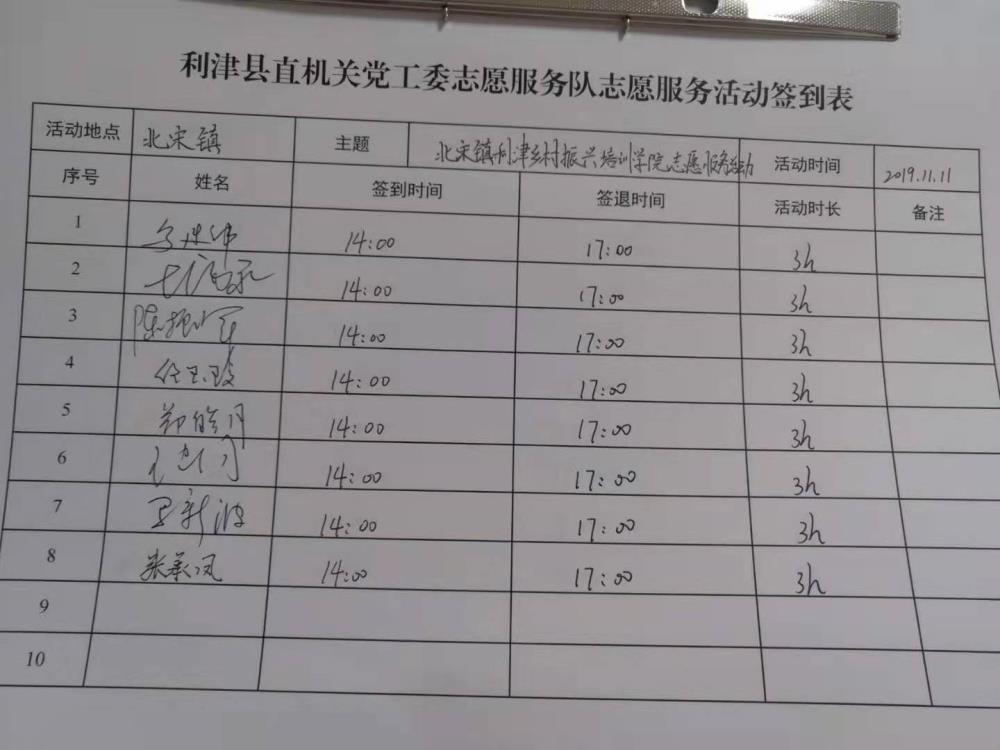 利津县直机关党工委志愿服务队志愿服务活动签到表
活动地点 北宋镇 主题 北宋镇利津乡村振兴培训学院志愿服务活动 活动时间 2019.11.11
序号 姓名 签到时间 签退时间 活动时长 备注
1 14:00 17:00 3h
2 14:00 17:00 3h
3 14:00 17:00 3h
4 任玉玲 14:00 17:00 3h
5 郑皓月 14:00 17:00 3h
6 14:00 17:00 3h
7 王新波 14:00 17:00 3h
8 张承凤 14:00 17:00 3h
9
10